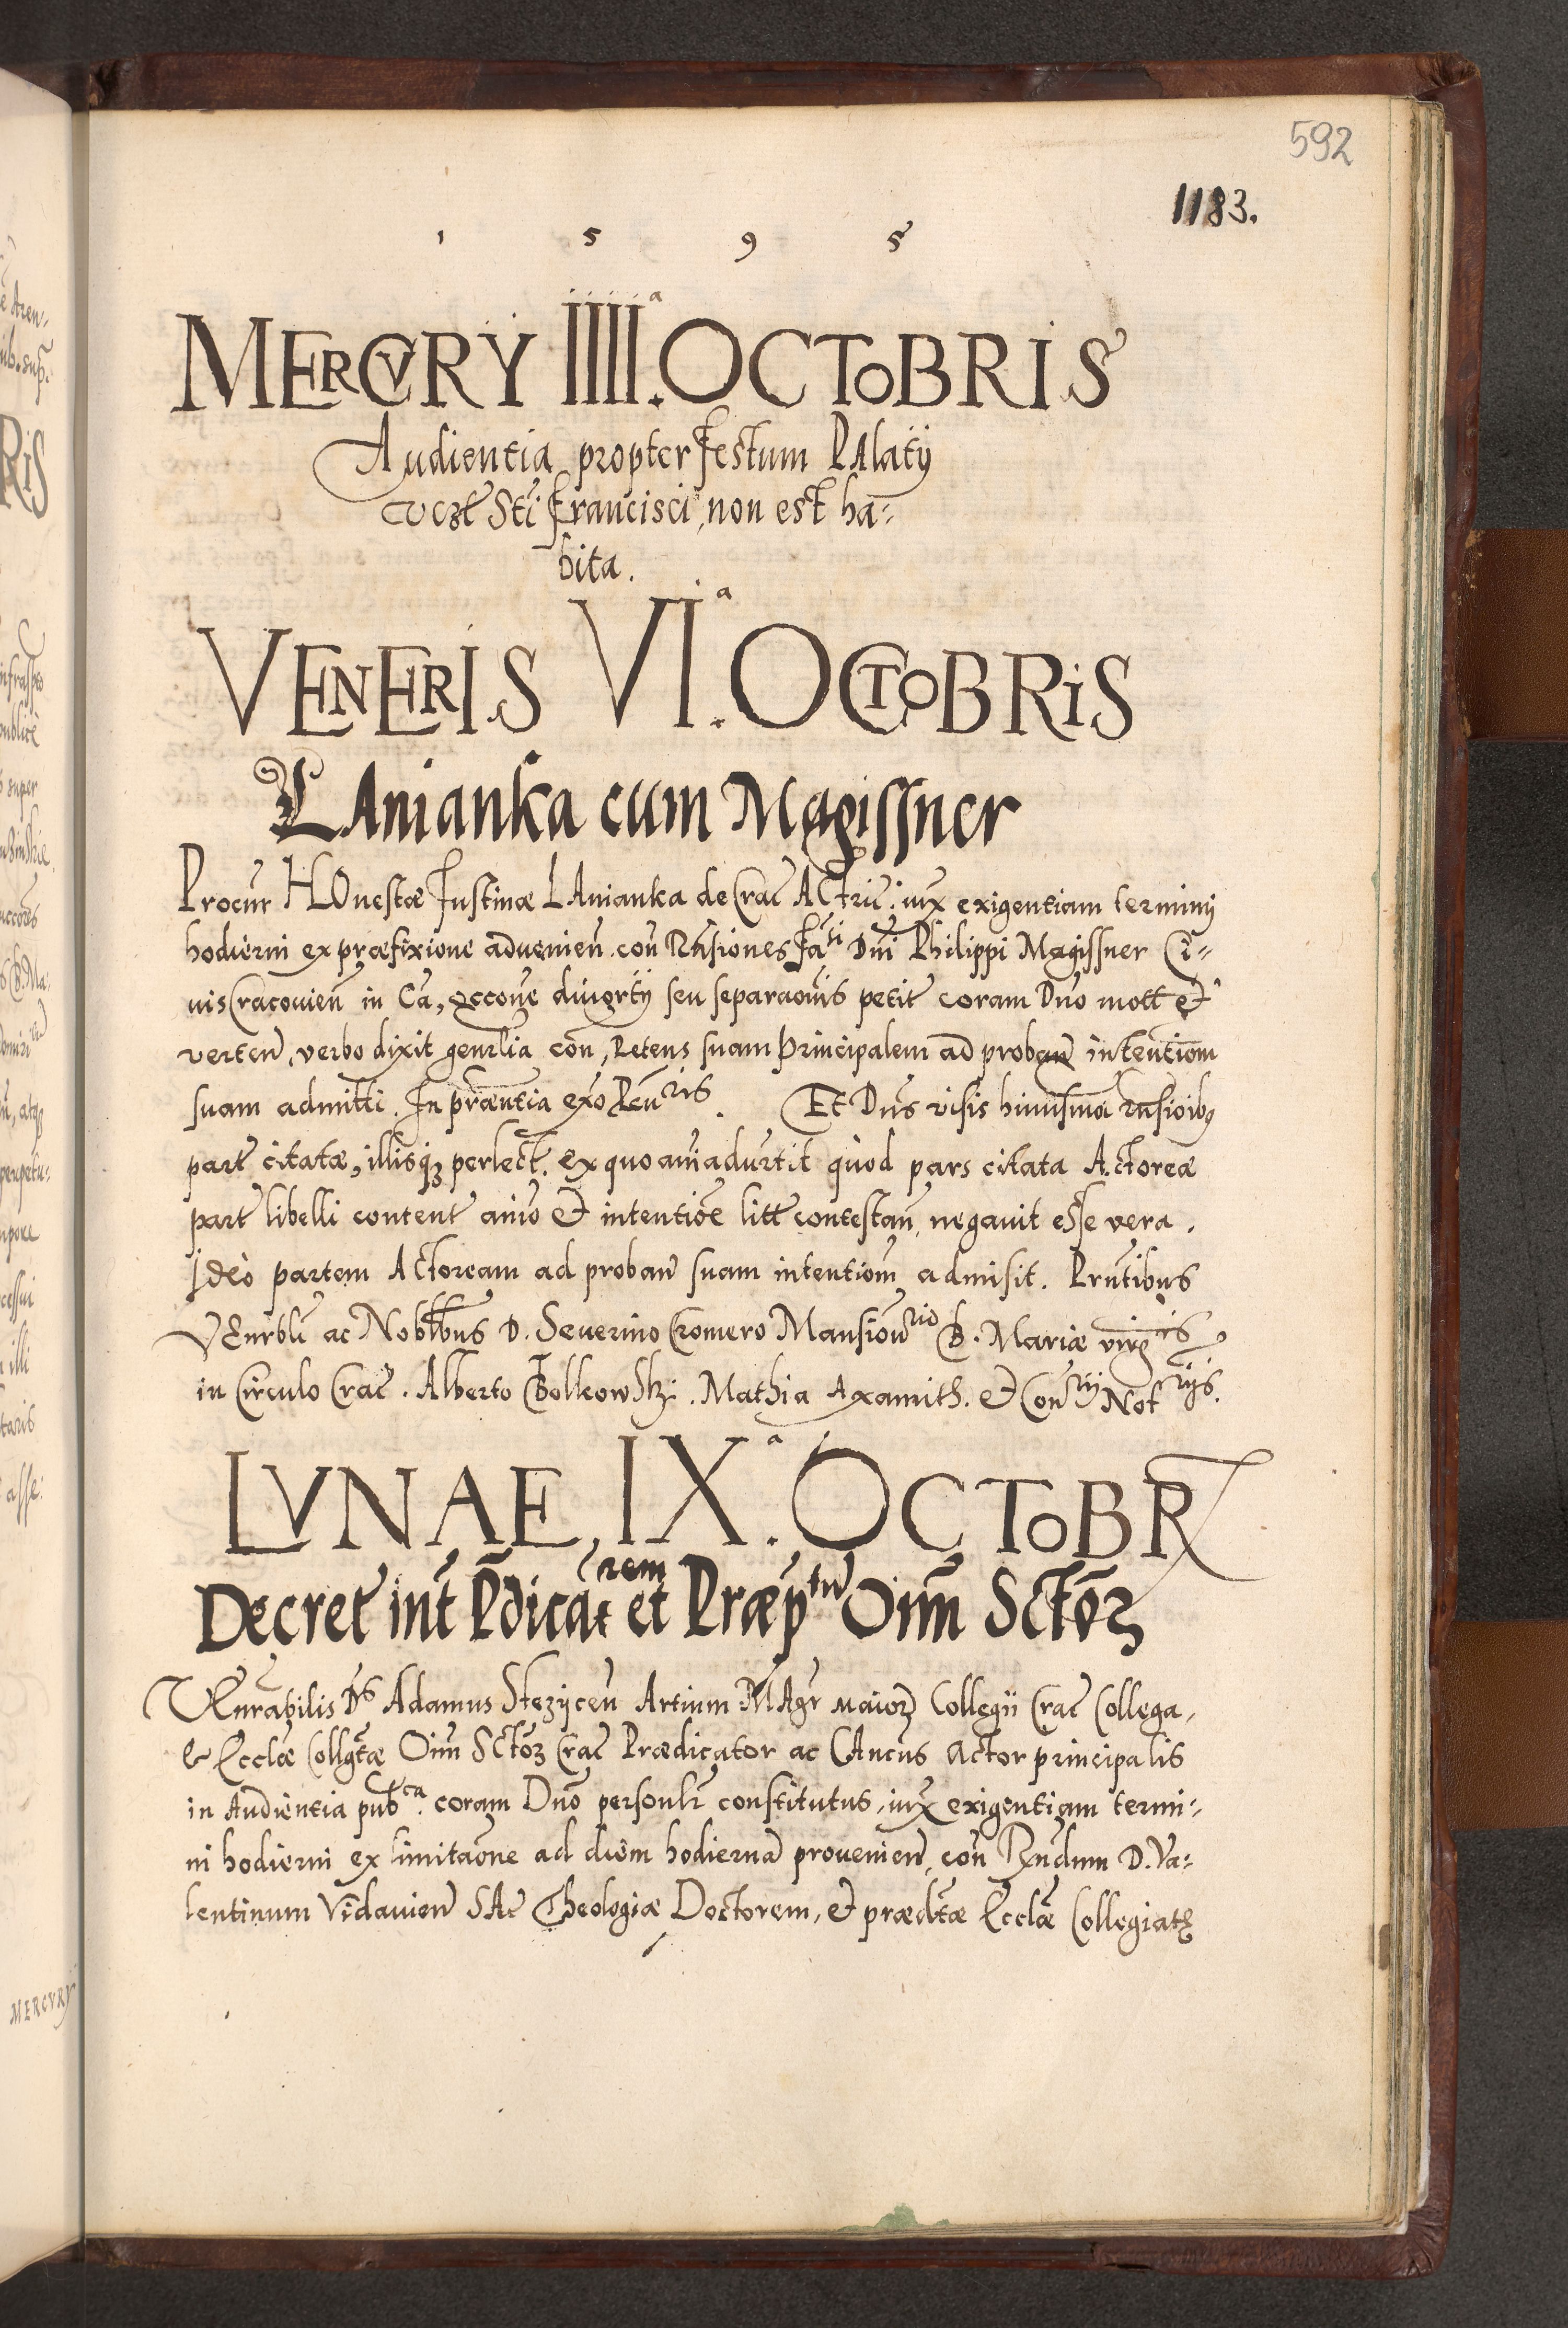 592
1183.
1 5 9 5
MERCVRY IIIIª. OCTOBRIS
Audientia propter Festum PAlatÿ
vezt Sti Francisci, non est ha=
bita.
VENERIS VIª. OCTOBRIS
LAnianka cum Magissner
Procur HOnestæ Justinæ LAnianka de Crac ACtric. iux exigentiam terminÿ
hodierni ex præfixione advenien. con Rnsiones Fati Dni Philippi Magissner Ci=
uis Cracouien in Ca, diuortÿ seu separaonis petit coram Dno mott et
verten, verbo dixit genrlia con, Petens suam Principalem ad proban intentiom
suam admitti. In præntia exo Renris. Et Dns visis rnsioibus
part citatæ, illisqз perlect. ex quo aniadurtit quod pars citata Actoreæ
part libelli content anio et intentioe litt contestan, negauit esse vera.
Ideo partem ACtoream ad proban suam intentiom admisit. Prntibus
VEnrbli ac Noblbus D. Seuerino Cromero Mansionrio B. Mariæ virgris
in Circulo Crac. Alberto Bolkowski. Mathia Axamith. et Conrÿ Notrijs.
LVNAE, IXª. OCTOBR
Decret int Pdicatrem et Præptu Oim Sctoꝝ
VEnrabilis Ds Adamus Stezÿcen Artium MAgr maioꝝ Collegii Crac Collega,
& Ecclæ Collgtæ Oim SCtoꝝ Crac Prædicator ac CAncus Actor principalis
in Audientia pubca. coram Dno personlr constitutus, iux exigentiam termi=
ni hodierni ex limitaone ad diem hodierna prouenien, con Rndum D. Va=
lentinum Vidauien SAc Theologiæ Doctorem, et prædtæ Ecclæ Collegiat
MERCVRY